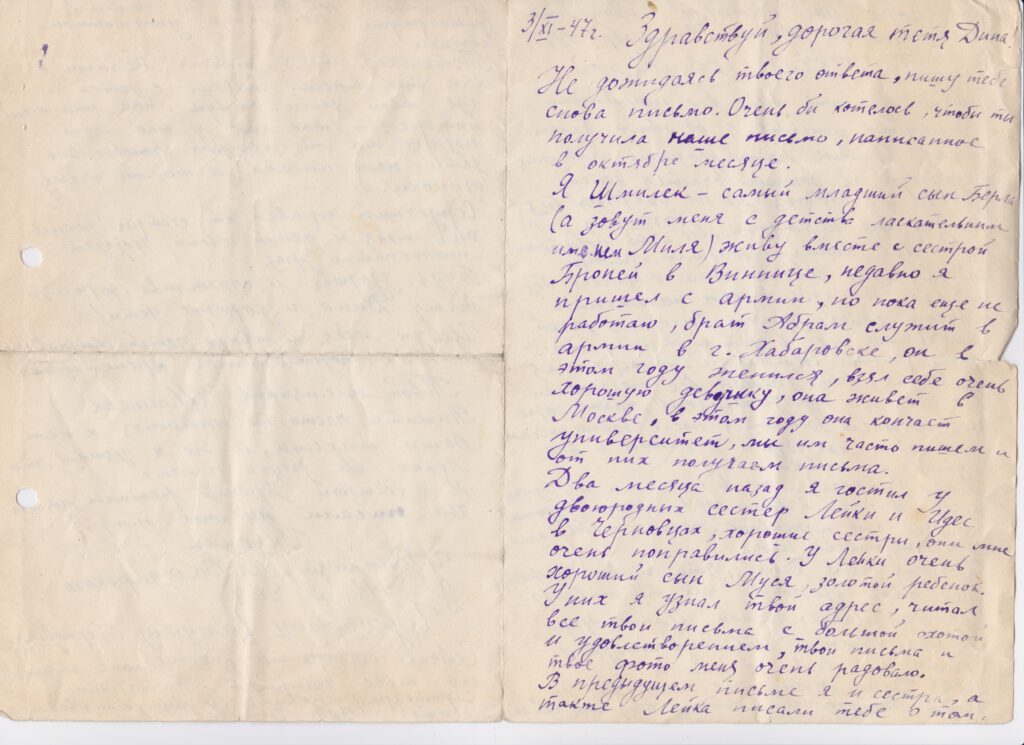 3/XI-47г. Здравствуй, дорогая тетя Дина.
Не дожидаясь твоего ответа, пишу тебе
снова письмо. Очень бы хотелось, чтобы ты
получила наше письмо, написанное
в октябре месяце.
Я Шмилек - самый младший сын Берла
(а зовут меня с детства ласкательным
именем Миля) живу вместе с сестрой
Броней в Виннице, недавно я
пришел с армии, но пока еще не
работаю, брат Абрам служит в
армии в г. Хабаровске, он в
этом году женился, взял себе очень
хорошую девочку, она живет в
Москве, в этом году она кончает
университет, мы им часто пишем и
от них получаем письма.
Два месяца назад я гостил у
двоюродных сестер Лейки и Идес
в Черновцах, хорошие сестры, они мне
очень понравились. У Лейки очень
хороший сын Муся, золотой ребенок.
У них я узнал твой адрес, читал
все твои письма с большой охотой
и удовлетворением, твои письма и
твое фото меня очень радовало.
В предыдущем письме я и сестра, а
также Лейка писали тебе о том,